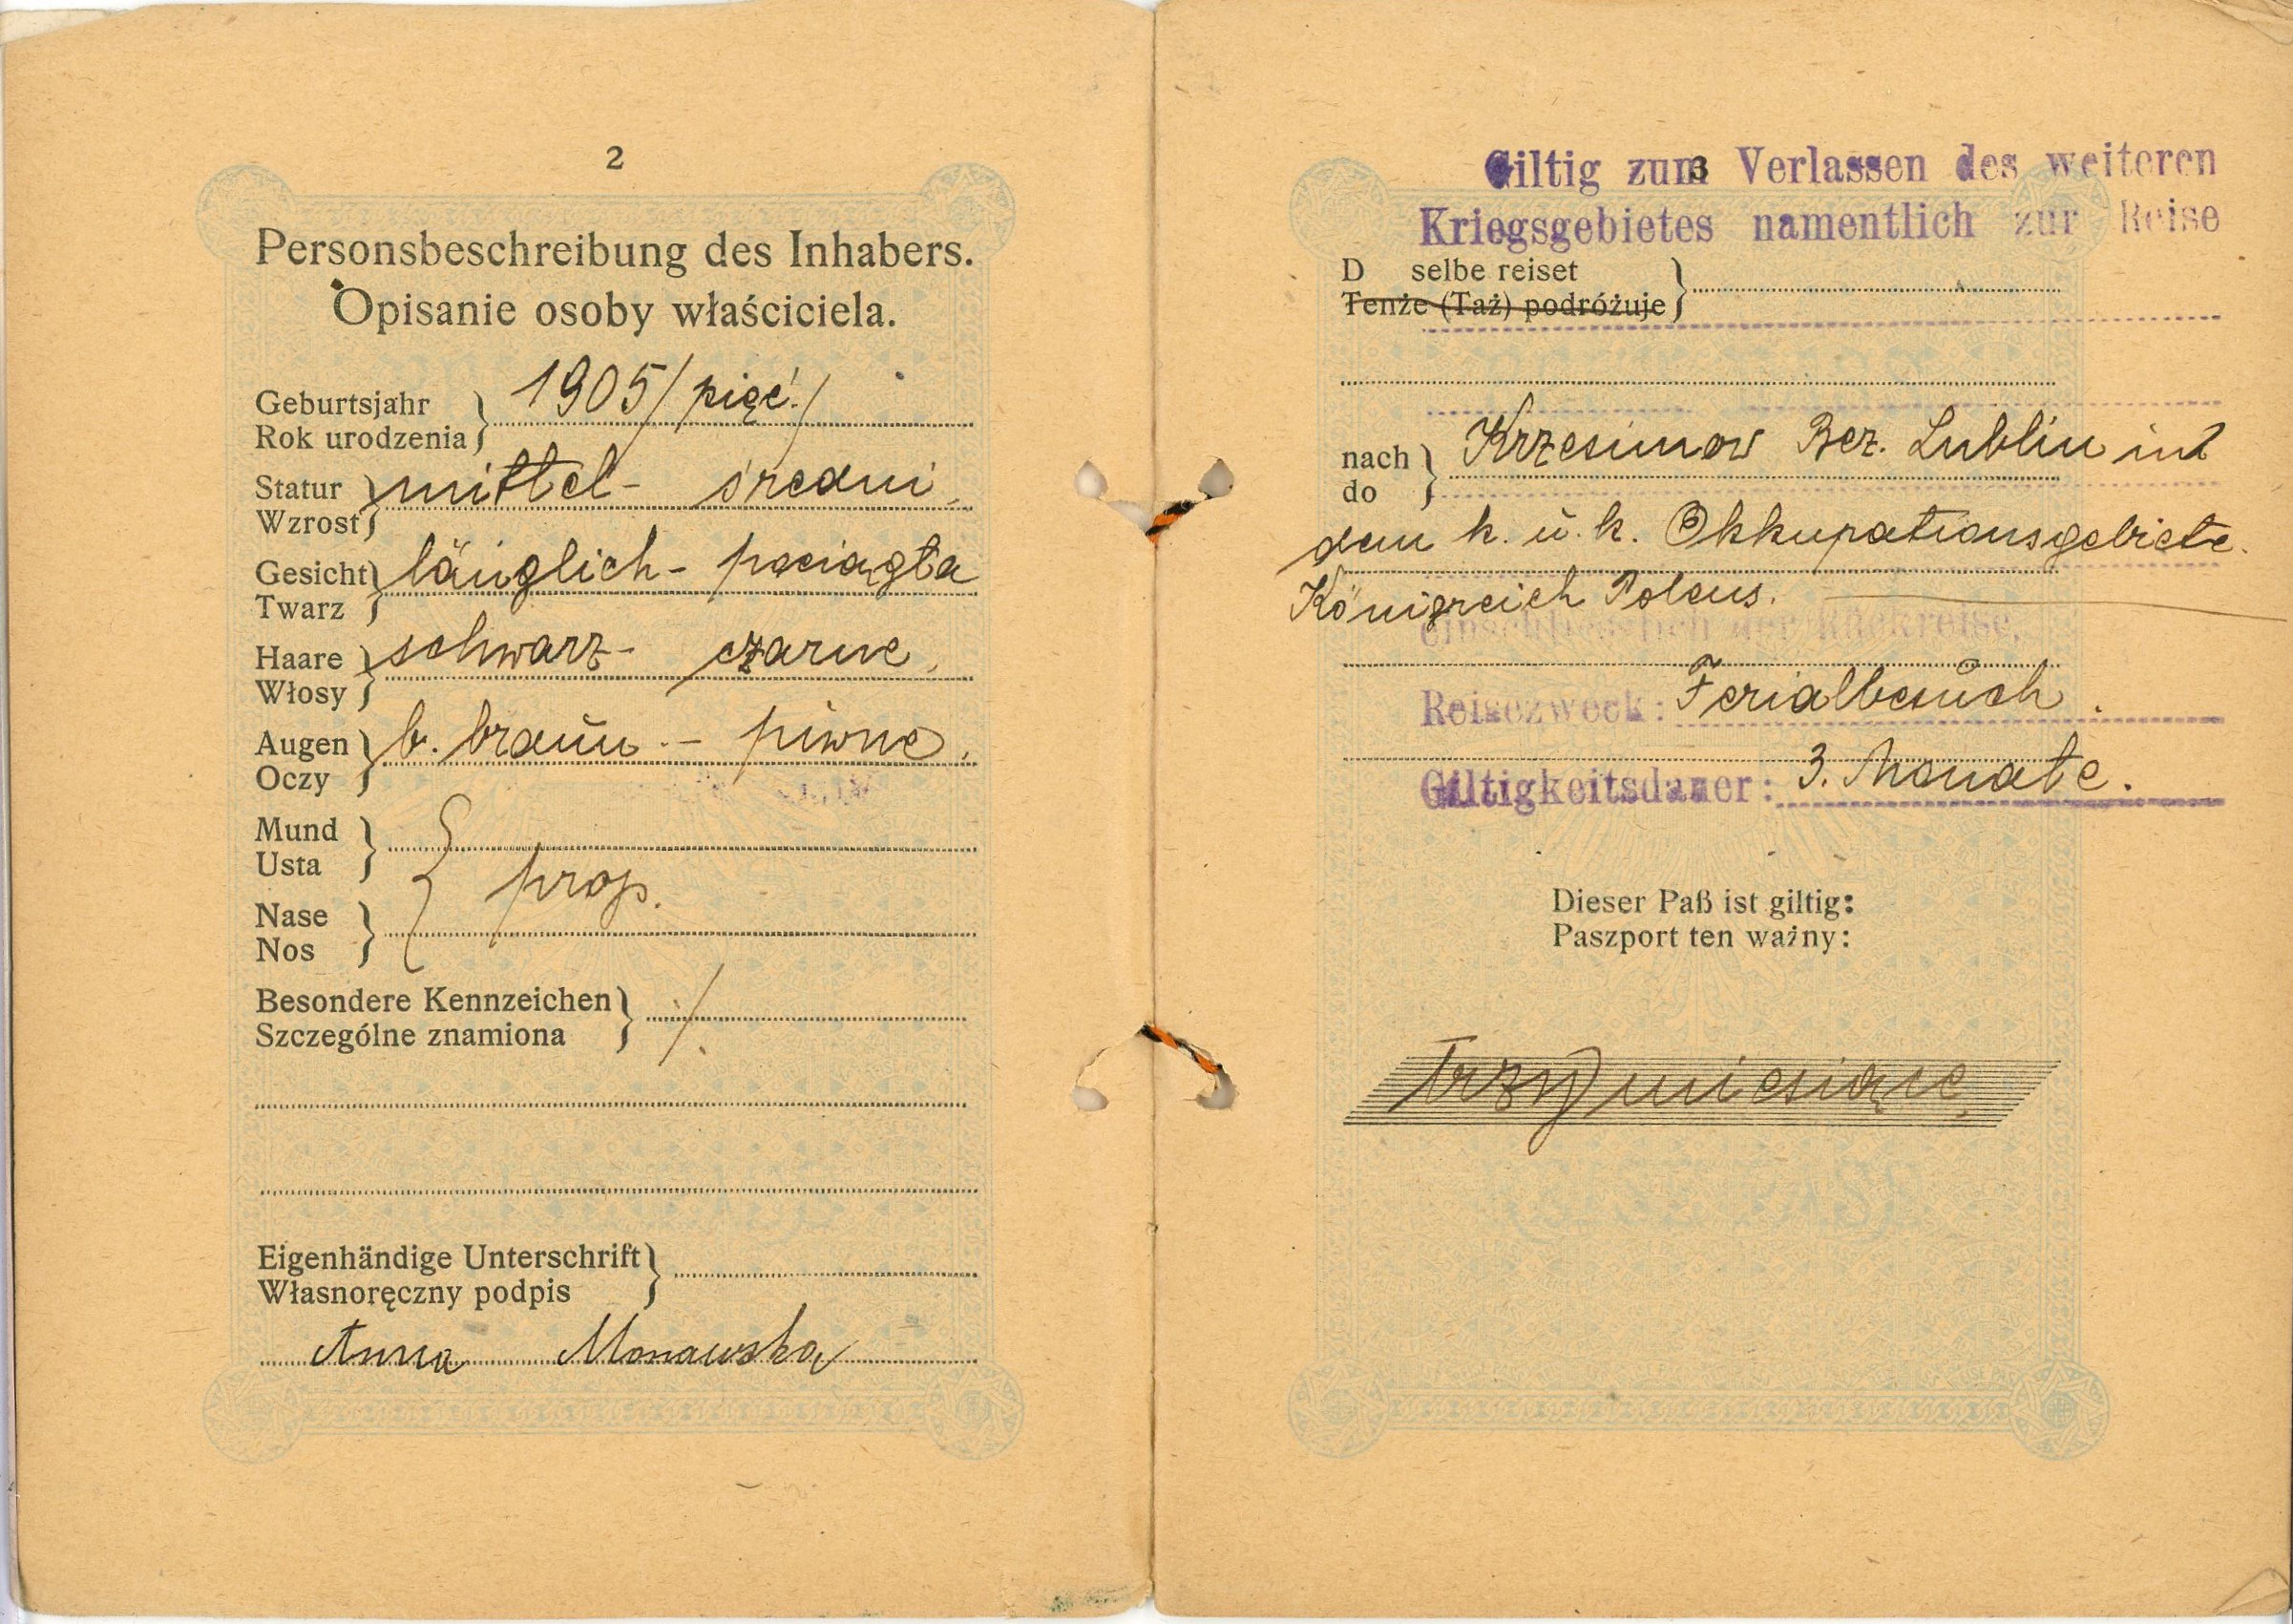 2
Personsbeschreibung des Inhabers.
Opisanie osoby właściciela.
Geburtsjahr
Rok urodzenia
1905 / pięć. /
Statur
Wzrost
mittel - średni.
Gesicht
Twarz
länglich - pociągła
Haare
Włosy
schwarz - czarne.
Augen
Oczy
b. braun. - piwne.
Mund
Usta
prop.
Nase
Nos
Besondere Kennzeichen
Szczególne znamiona
./.
Eigenhändige Unterschrift
Własnoręczny podpis
Anna
3
Giltig zum Verlassen des weiteren
Kriegsgebietes namentlich zur Reise
D selbe reiset
Tenże (Taż) podróżuje
nach
do
Krzesimow Bez. Lublin in
dem k. u. k. Okkupationsgebiete
Königreich Polens.
einschliesslich der Rückreise.
Reisezweck: Ferialbesuch.
Giltigkeitsdauer: 3. Monate.
Dieser Paß ist giltig:
Paszport ten ważny:
Trzy miesiące